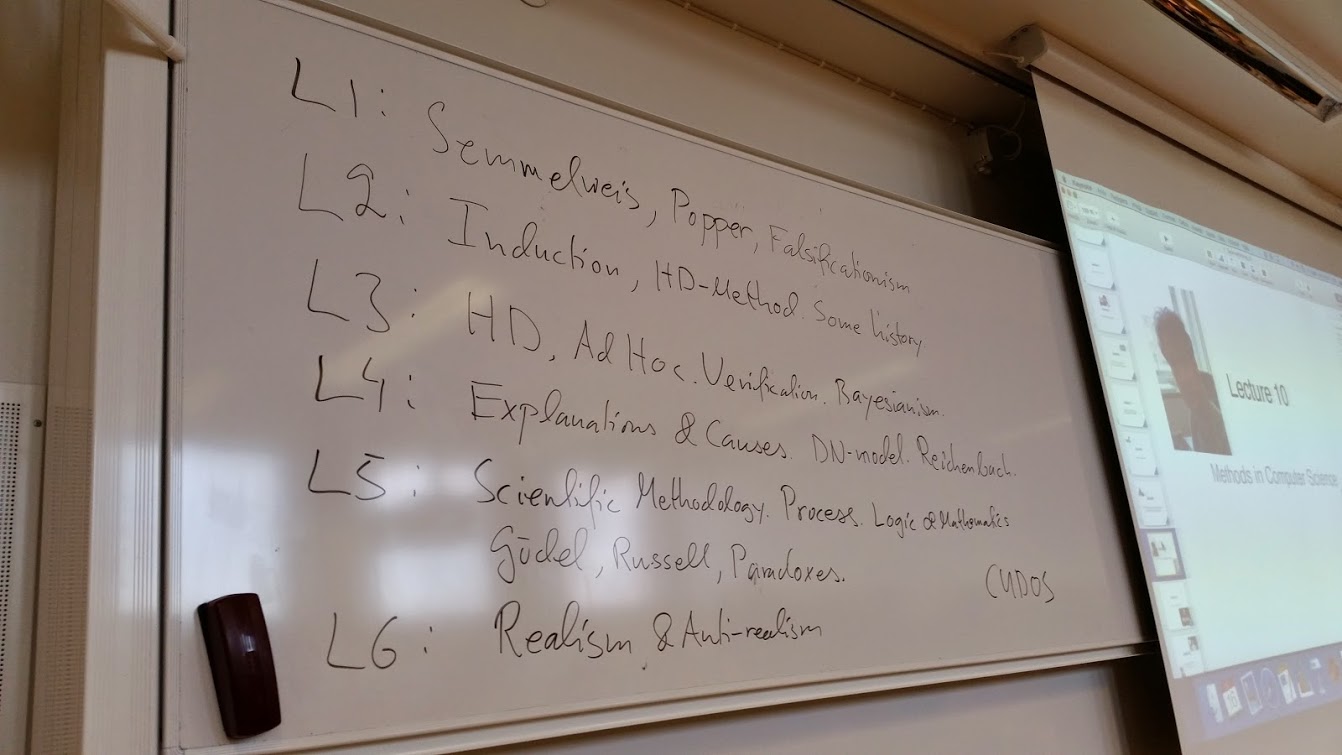 L1: Semmelweis, Popper, Falsificationism
L2: Induction, HD-Method. Some history
L3: HD, Ad Hoc. Verification. Bayesianism.
L4: Explanations & Causes. DN-model. Reichenbach.
L5: Scientific Methodology. Process. Logic & Mathematics
Gödel, Russell, Paradoxes.
CUDOS
L6: Realism & Anti-realism
Lecture 10
Methods in Computer Science